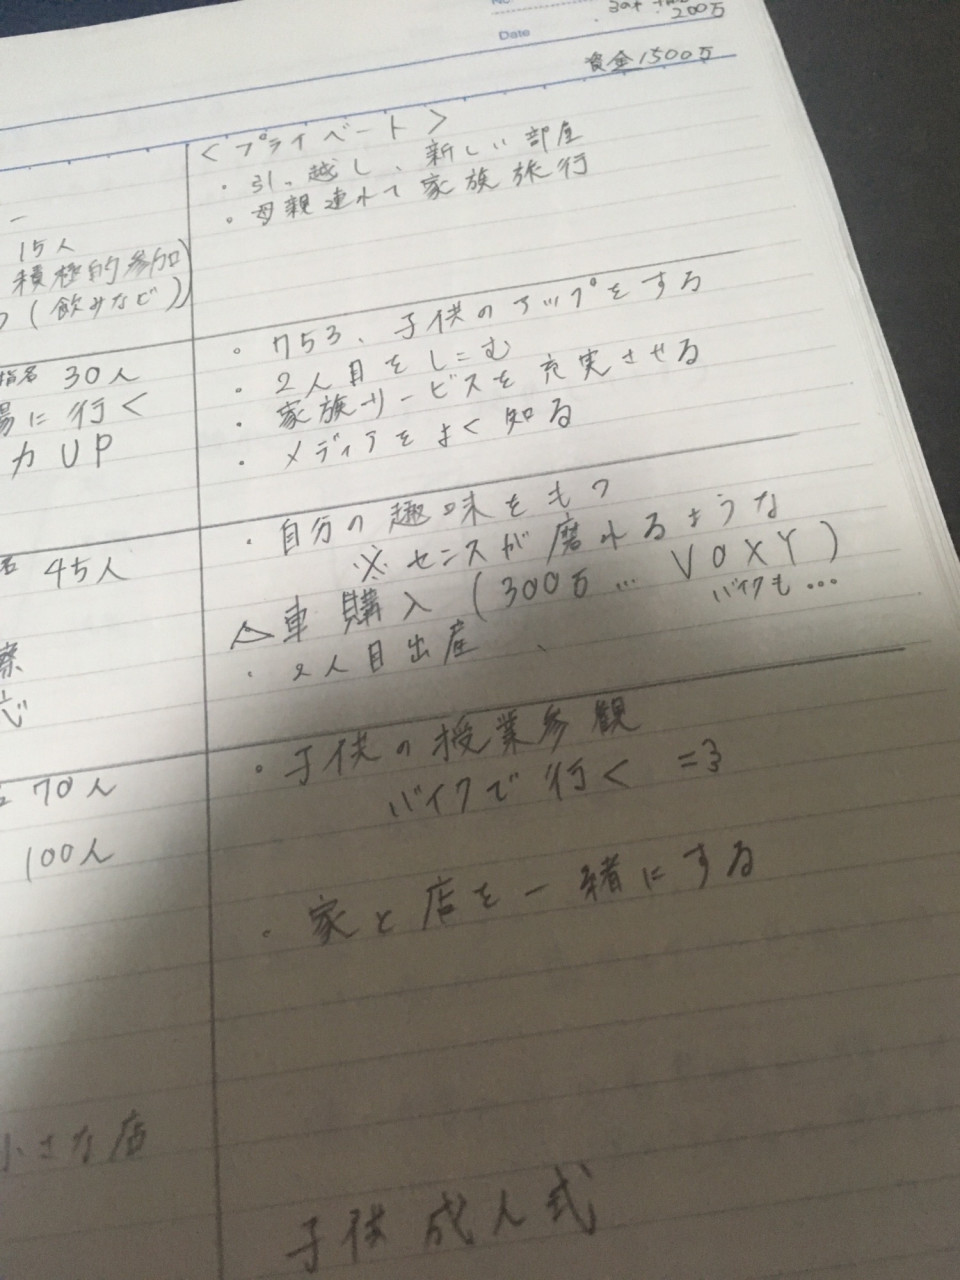 No.
200万
Date
資金1500万
<プライベート>
・引っ越し、新しい部屋
・母親連れて家族旅行
15人
積極的参加
(飲みなど)
・753、子供のアップをする
・2人目をしこむ
・家族サービスを充実させる
・メディアをよく知る
指名 30人
場に行く
力UP
・自分の趣味をもつ
※センスが磨れるような
△車購入(300万… VOXY)
バイクも…
・2人目出産
名 45人
察
・子供の授業参観
バイクで行く =3
70人
100人
・家と店を一緒にする
小さな店
子供成人式